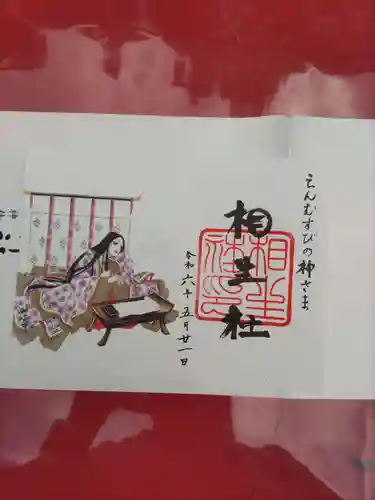 えんむすびの神さま
相生社
相生社印
令和六十五月廿一日